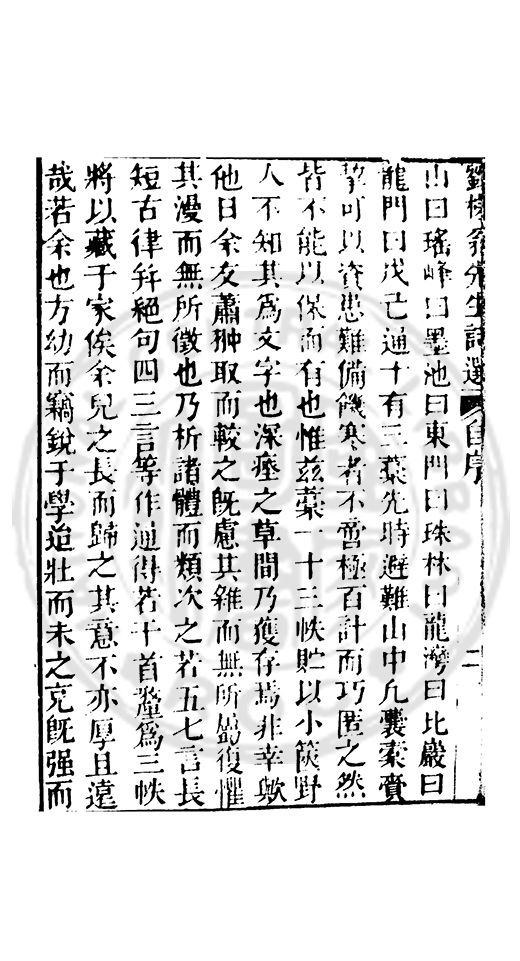 劉槎翁先生詩選 自序 二
山曰瑤峰曰墨池曰東門曰珠林曰龍灣曰北巖曰
龍門曰戊己通十有三藁先時避難山中凢囊槖賫
挈可以資患難備饑寒者不啻極百計而巧匿之然
皆不能以保而有也惟茲藁一十三帙貯以小篋野
人不知其為文字也深瘞之草間乃獲存焉非幸歟
他日余友蕭翀取而較之旣慮其雜而無所復懼
其漫而無所徵也乃析諸體而類次之若五七言長
短古律并絕句四三言等作通得若干首釐為三帙
將以藏于家俟余兒之長而歸之其意不亦厚且遠
哉若余也方幼而竊銳于學迨壯而未之克旣强而